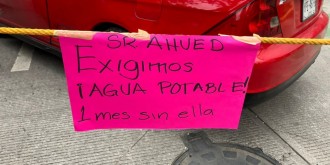 SR AHUED
Exigimos
¡AGUA POTABLE!
1 mes sin ella